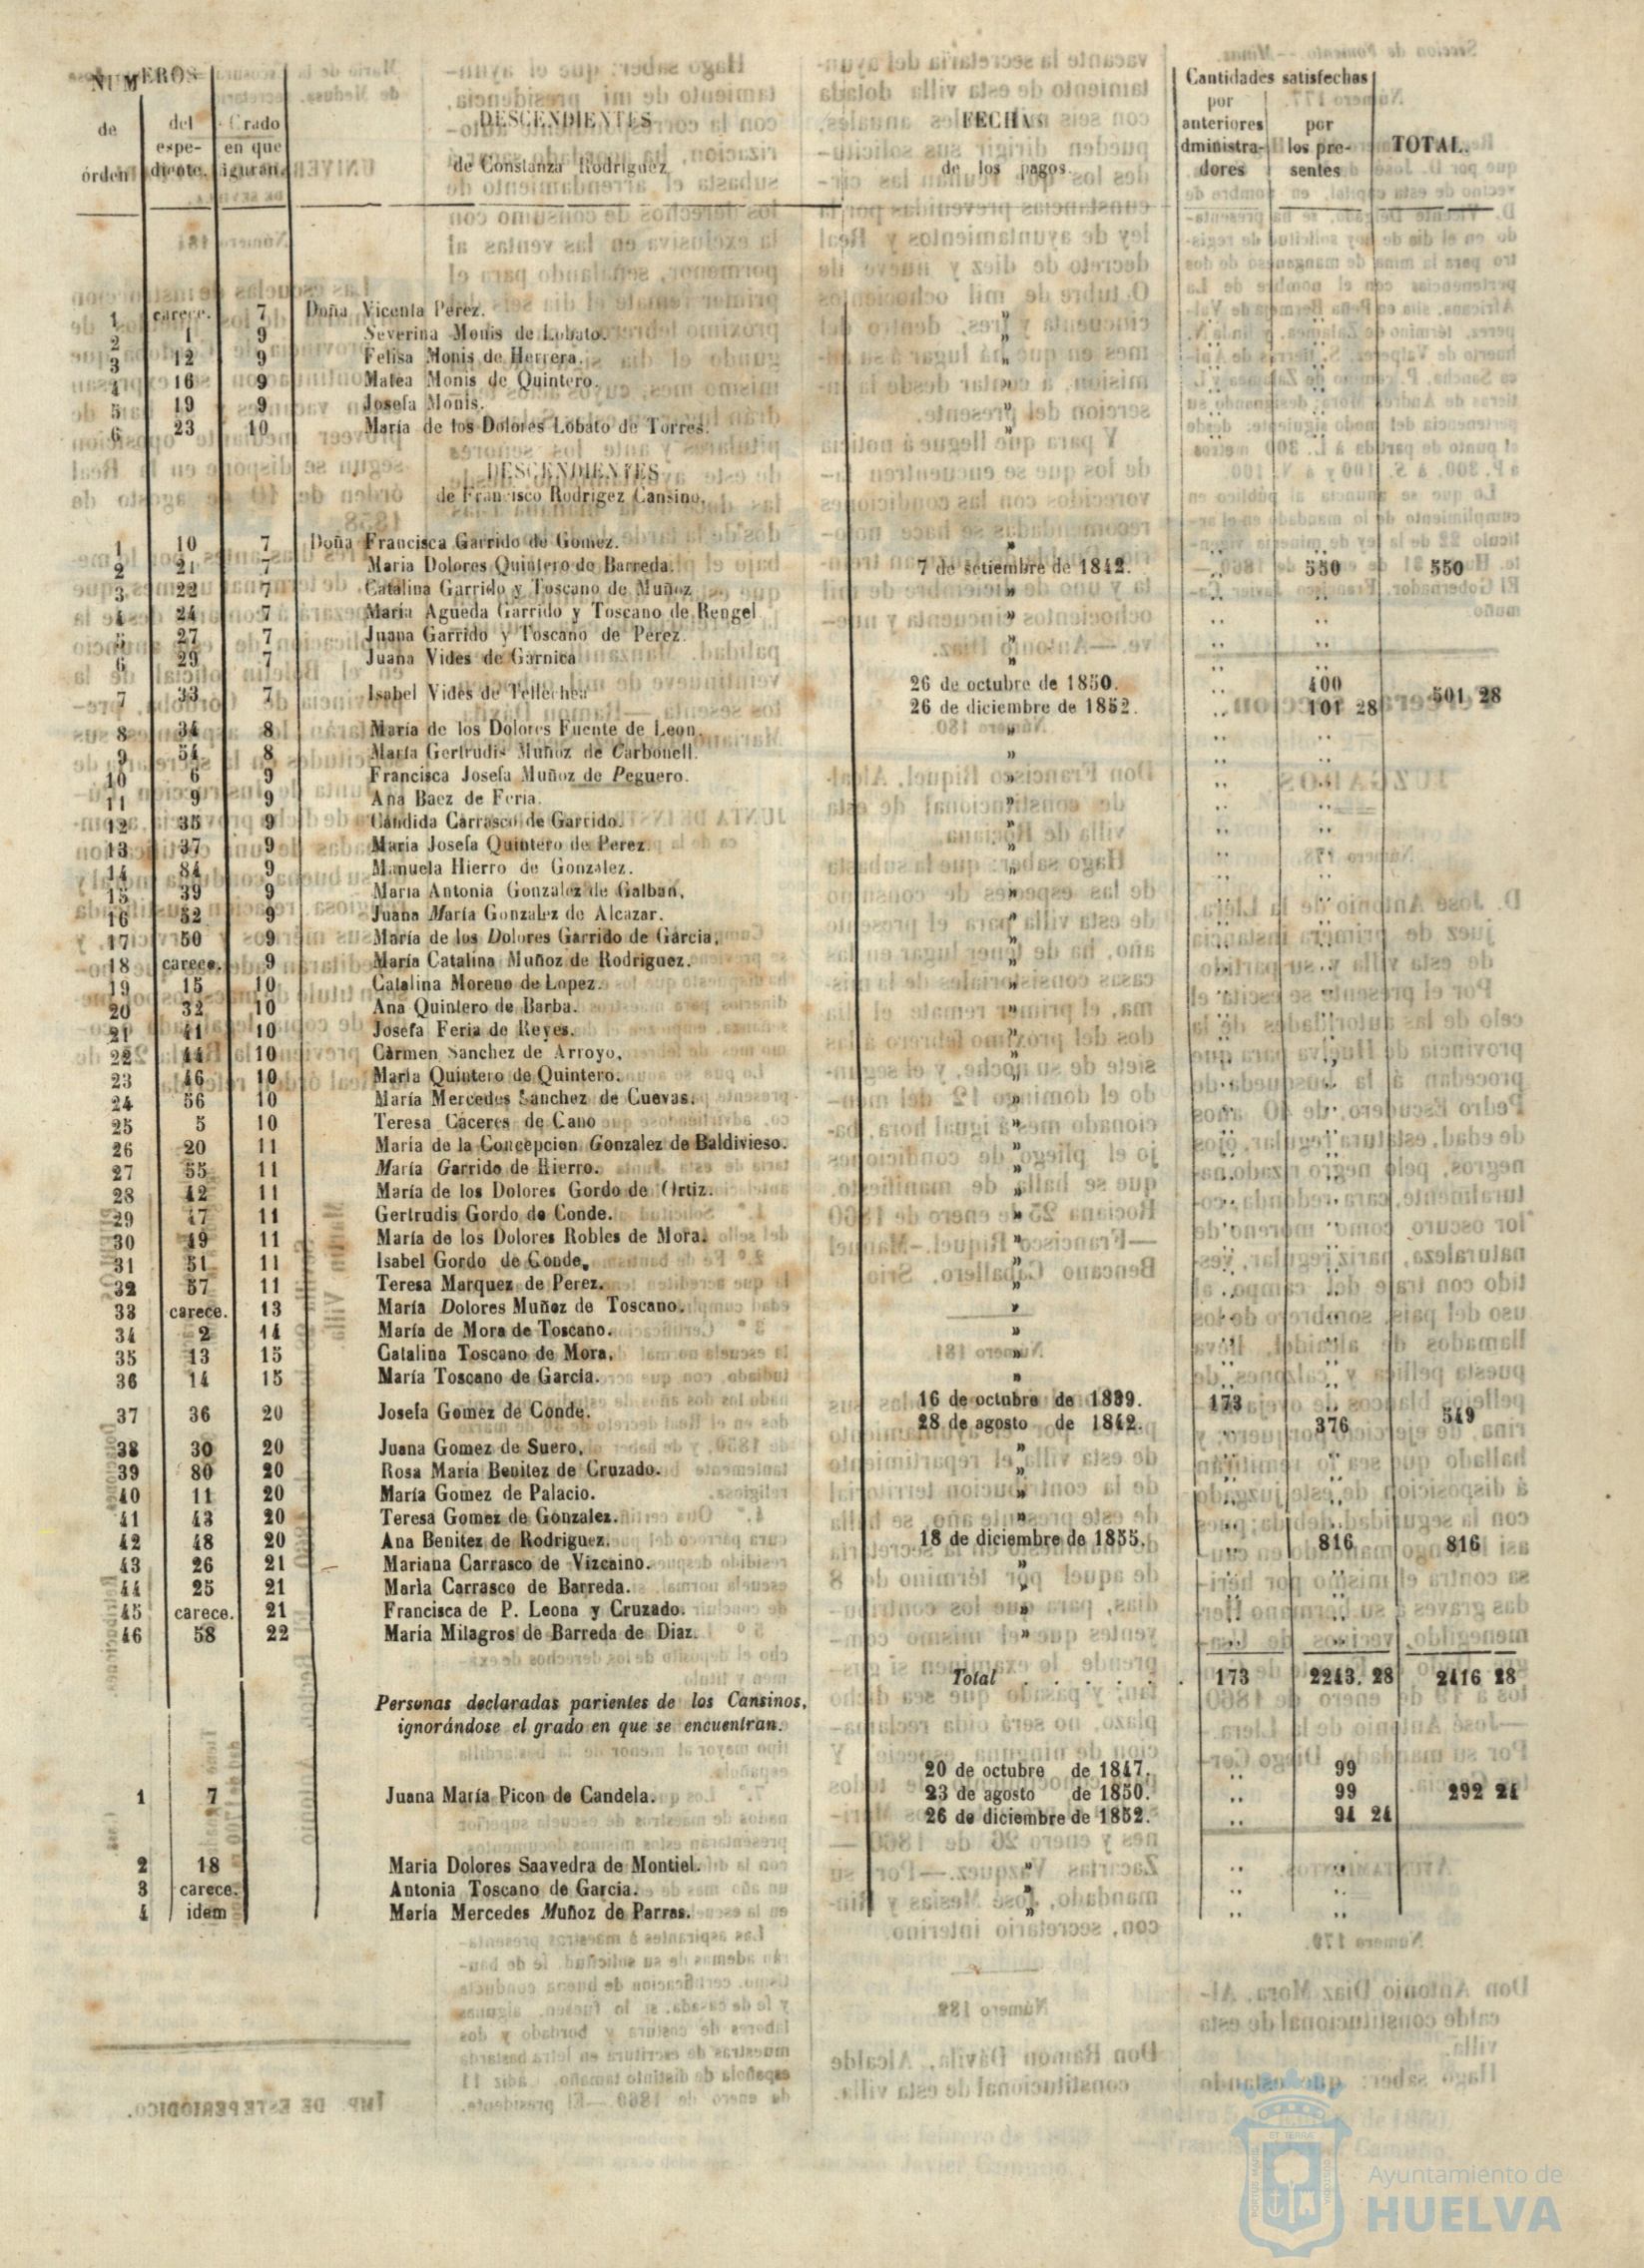 NUMEROS
de órden
del expe- diente.
Grado en que figuran.
DESCENDIENTES
de Constanza Rodriguez.
FECHAS
de los pagos.
Cantidades satisfechas
por anteriores administra- dores
por los pre- sentes
TOTAL.
1 carece. 7 Doña Vicenta Perez. "
2 1 9 Severina Monis de Lobato. "
3 12 9 Felisa Monis de Herrera. "
4 16 9 Matea Monis de Quintero. "
5 19 9 Josefa Monis. "
6 23 10 María de los Dolores Lobato de Torres. "
DESCENDIENTES
de Francisco Rodrigez Cansino.
1 10 7 Doña Francisca Garrido de Gomez. " .. ..
2 21 7 Maria Dolores Quintero de Barreda. 7 de setiembre de 1842. .. 550 550
3 22 7 Catalina Garrido y Toscano de Muñoz " .. ..
4 24 7 María Agueda Garrido y Toscano de Rengel " .. ..
5 27 7 Juana Garrido y Toscano de Perez. " .. ..
6 29 7 Juana Vides de Garnica " .. ..
7 33 7 Isabel Vides de Tellechea 26 de octubre de 1850. .. 400
26 de diciembre de 1852. .. 101 28 501 28
8 34 8 María de los Dolores Fuente de Leon. " .. ..
9 54 8 María Gertrudis Muñoz de Carbonell. " .. ..
10 6 9 Francisca Josefa Muñoz de Peguero. " .. ..
11 9 9 Ana Baez de Feria. " .. ..
12 35 9 Cándida Carrasco de Garrido. " .. ..
13 37 9 Maria Josefa Quintero de Perez. " .. ..
14 84 9 Manuela Hierro de Gonzalez. " .. ..
15 39 9 Maria Antonia Gonzalez de Galban. " .. ..
16 52 9 Juana María Gonzalez de Alcazar. " .. ..
17 50 9 María de los Dolores Garrido de Garcia. " .. ..
18 carece. 9 María Catalina Muñoz de Rodriguez. " .. ..
19 15 10 Catalina Moreno de Lopez. " .. ..
20 32 10 Ana Quintero de Barba. " .. ..
21 41 10 Josefa Feria de Reyes. " .. ..
22 44 10 Cármen Sanchez de Arroyo. " .. ..
23 46 10 María Quintero de Quintero. " .. ..
24 56 10 María Mercedes Sanchez de Cuevas. " .. ..
25 5 10 Teresa Cáceres de Cano " .. ..
26 20 11 María de la Concepcion Gonzalez de Baldivieso. " .. ..
27 55 11 María Garrido de Hierro. " .. ..
28 42 11 María de los Dolores Gordo de Ortiz. " .. ..
29 47 11 Gertrudis Gordo de Conde. " .. ..
30 49 11 María de los Dolores Robles de Mora. " .. ..
31 51 11 Isabel Gordo de Conde. " .. ..
32 57 11 Teresa Marquez de Perez. " .. ..
33 carece. 13 María Dolores Muñoz de Toscano. " .. ..
34 2 14 María de Mora de Toscano. " .. ..
35 13 15 Catalina Toscano de Mora. " .. ..
36 14 15 María Toscano de Garcia. " .. ..
37 36 20 Josefa Gomez de Conde. 16 de octubre de 1839. 173
28 de agosto de 1842. 376 549
38 30 20 Juana Gomez de Suero. " .. ..
39 80 20 Rosa María Benitez de Cruzado. " .. ..
40 11 20 María Gomez de Palacio. " .. ..
41 43 20 Teresa Gomez de Gonzalez. " .. ..
42 48 20 Ana Benitez de Rodriguez. 18 de diciembre de 1855. .. 816 816
43 26 21 Mariana Carrasco de Vizcaino. " .. ..
44 25 21 María Carrasco de Barreda. " .. ..
45 carece. 21 Francisca de P. Leona y Cruzado. " .. ..
46 58 22 Maria Milagros de Barreda de Diaz. " .. ..
Total . . . . . . 173 2243. 28 2416 28
Personas declaradas parientes de los Cansinos,
ignorándose el grado en que se encuentran.
20 de octubre de 1847. .. 99
1 7 Juana María Picon de Candela. 23 de agosto de 1850. .. 99 292 24
26 de diciembre de 1852. .. 94 24
2 18 Maria Dolores Saavedra de Montiel. " .. ..
3 carece. Antonia Toscano de Garcia. " .. ..
4 idem María Mercedes Muñoz de Parras. " .. ..
Ayuntamiento de
HUELVA